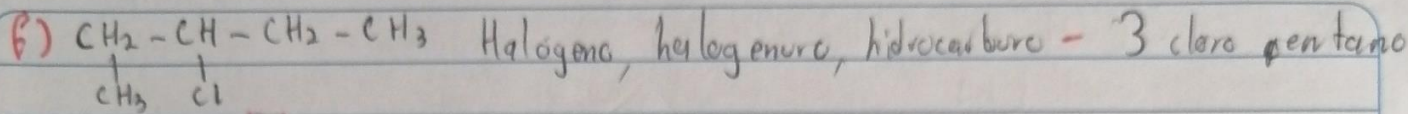 6) CH2 - CH - CH2 - CH3 Halógeno, halogenuro, hidrocarburo - 3 cloro pentano
CH3 Cl